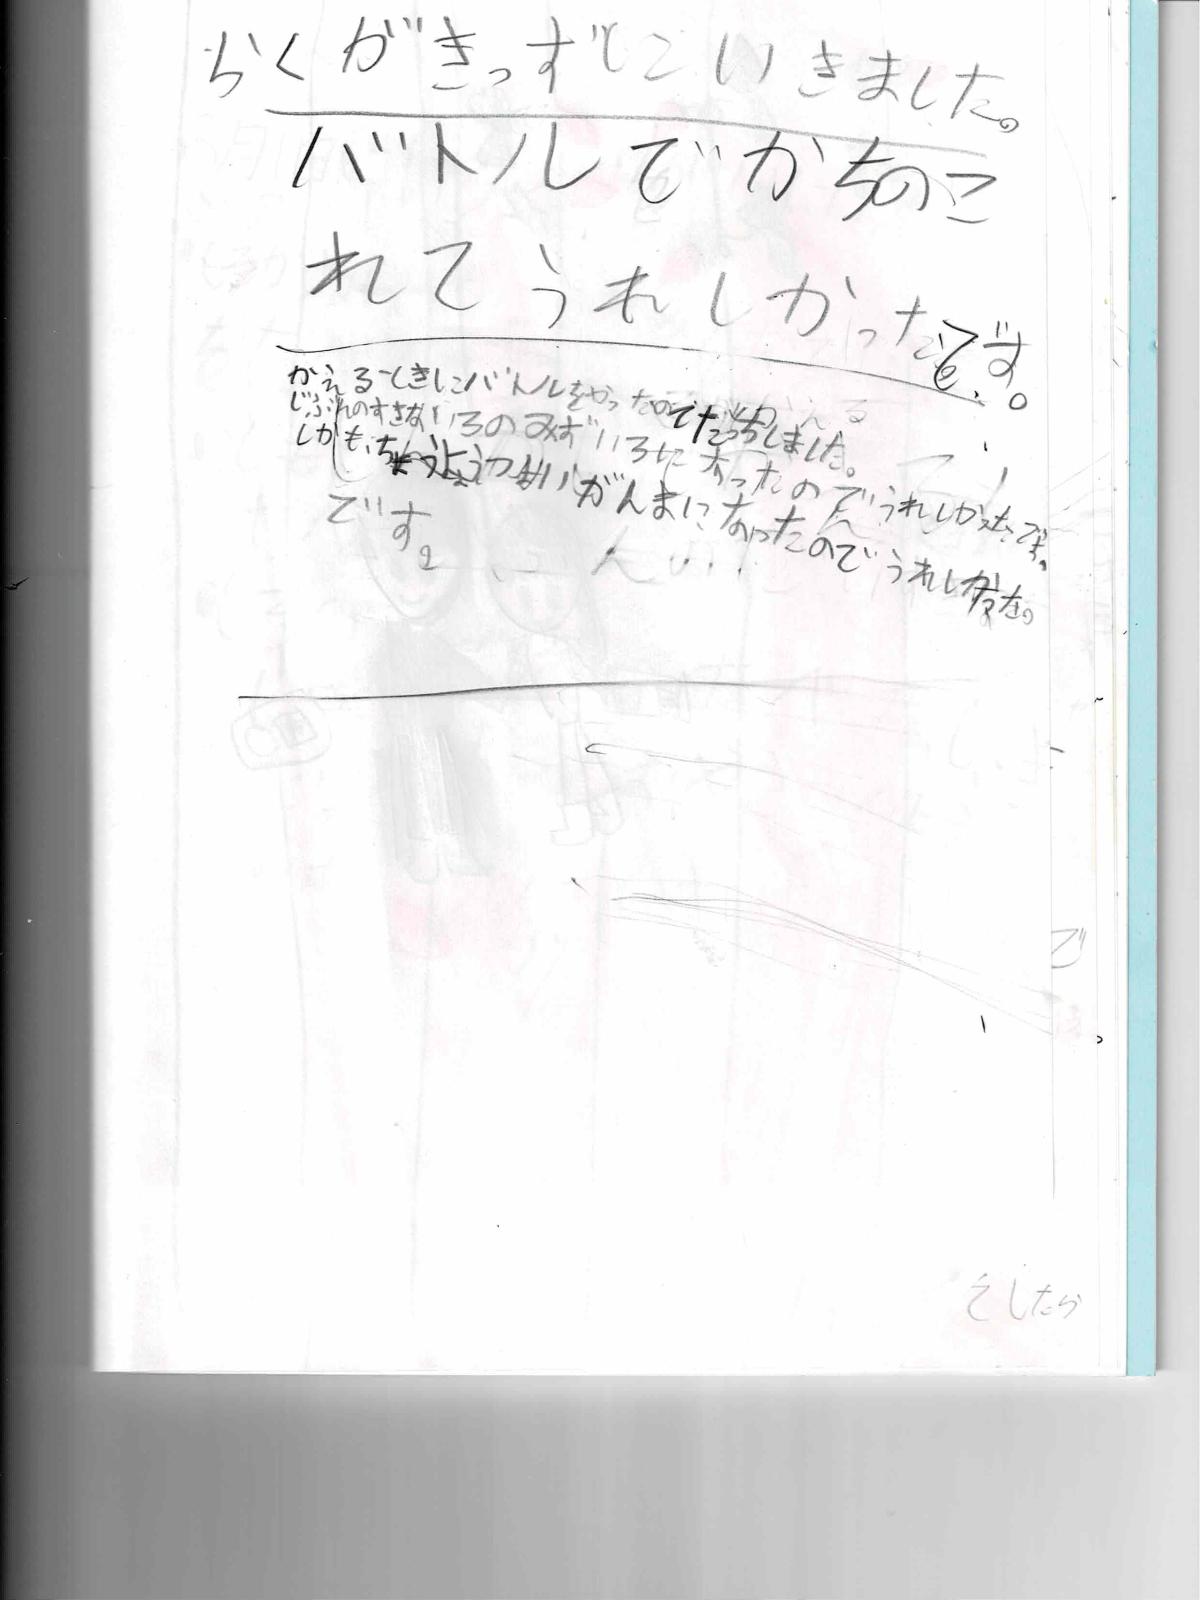 らくがきっずじこいきました。
バトルでかちのこ
れてうれしかったです。
かえるときにバトルをやったのでだっちしました。
じぶんのすきないろのみずいろになったのでうれしかったです。
しかも、ちょうようつよいがんまになったのでうれしかった。
です。
そしたら
で